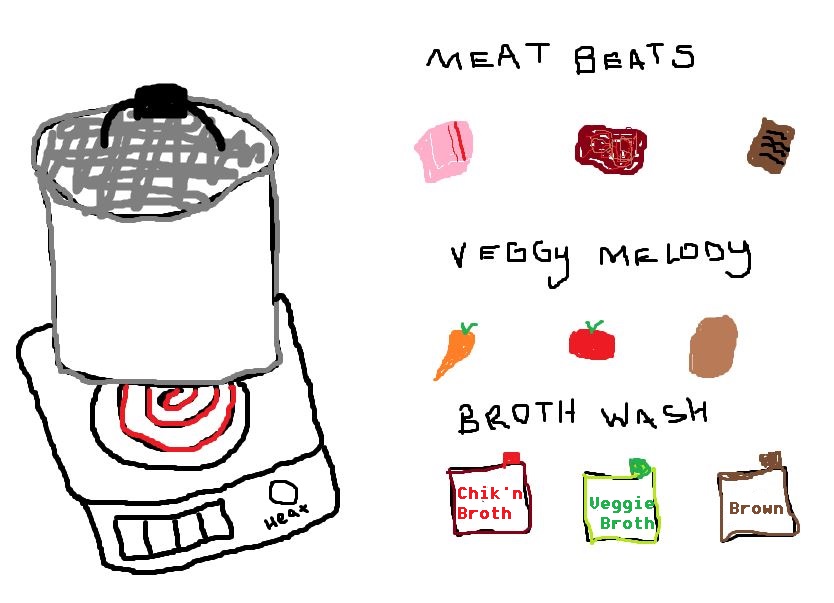 MEAT BEATS
VEGGY MELODY
BROTH WASH
Chik'n
Broth
Veggie
Broth
Brown
Heat